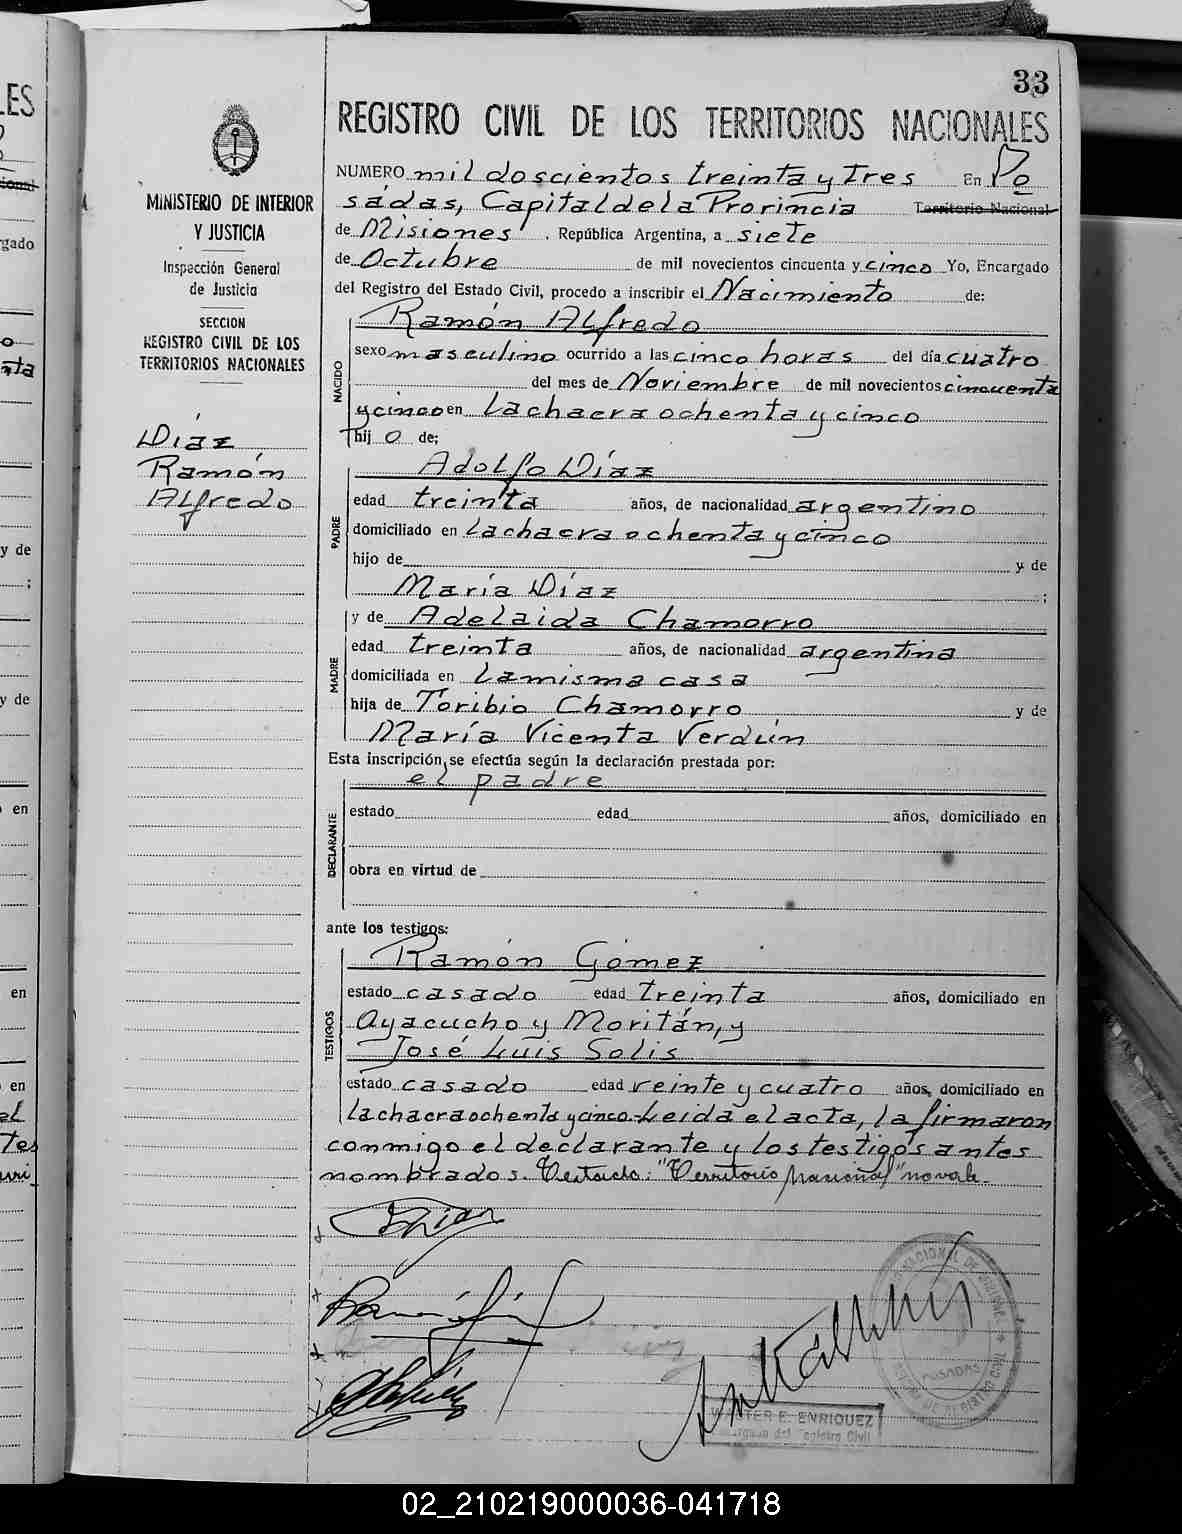 33
REGISTRO CIVIL DE LOS TERRITORIOS NACIONALES
MINISTERIO DE INTERIOR
Y JUSTICIA
Inspección General
de Justicia
SECCION
REGISTRO CIVIL DE LOS
TERRITORIOS NACIONALES
Díaz
Ramón
Alfredo
NUMERO mil doscientos treinta y tres En Po
sadas, Capital de la Provincia Territorio Nacional
de Misiones, República Argentina, a siete
de Octubre de mil novecientos cincuenta y cinco Yo, Encargado
del Registro del Estado Civil, procedo a inscribir el Nacimiento de:
NACIDO
Ramón Alfredo
sexo masculino ocurrido a las cinco horas del día cuatro
del mes de Noviembre de mil novecientos cincuenta
y cinco en la chacra ochenta y cinco
hijo de;
PADRE
Adolfo Díaz
edad treinta años, de nacionalidad argentino
domiciliado en la chacra ochenta y cinco
hijo de y de
María Díaz ;
MADRE
y de Adelaida Chamorro
edad treinta años, de nacionalidad argentina
domiciliada en la misma casa
hija de Toribio Chamorro y de
María Vicenta Verdún
Esta inscripción se efectúa según la declaración prestada por:
DECLARANTE
el padre
estado edad años, domiciliado en
obra en virtud de
ante los testigos:
TESTIGOS
Ramón Gómez
estado casado edad treinta años, domiciliado en
Ayacucho y Moritán, y
José Luis Solis
estado casado edad veinte y cuatro años, domiciliado en
la chacra ochenta y cinco.-Leida el acta, la firmaron
conmigo el declarante y los testigos antes
nombrados. Testado: "Territorio Nacional" no vale.
POSADAS
WALTER E. ENRIQUEZ
Encargado del Registro Civil
02_210219000036-041718